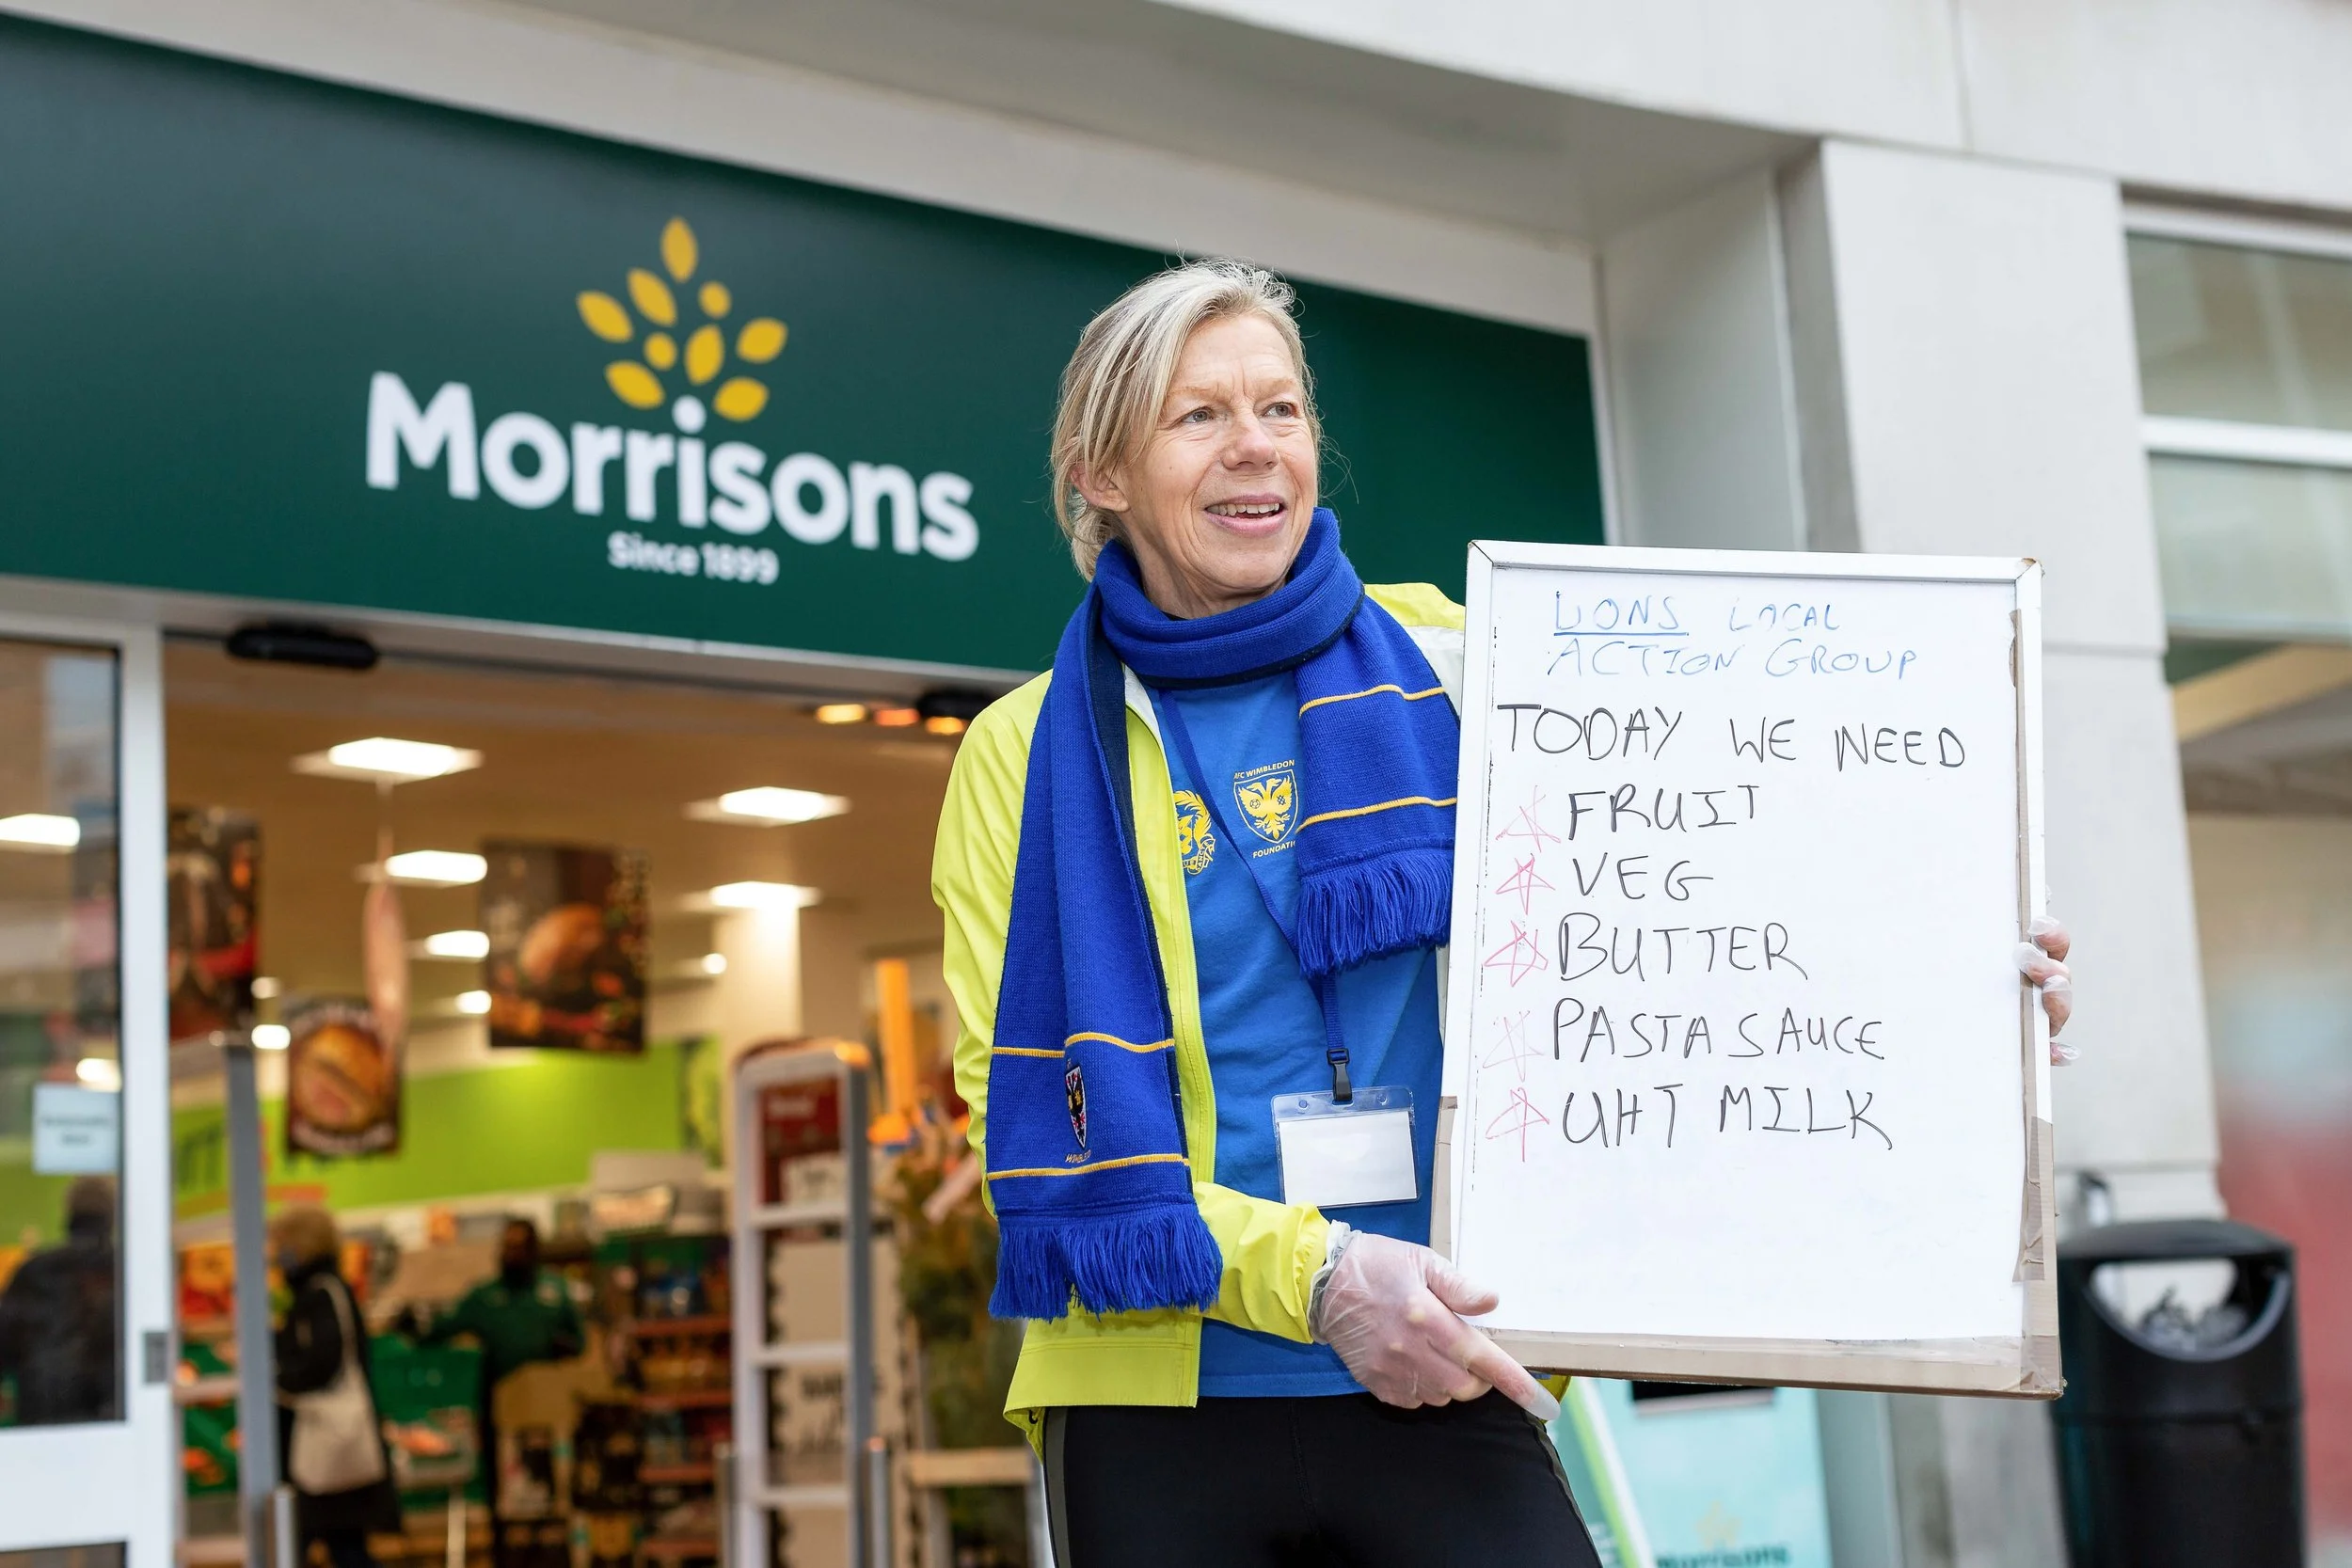 Morrisons
Since 1899
AFC WIMBLEDON
FOUNDATI
DONS LOCAL
ACTION GROUP
TODAY WE NEED
FRUIT
VEG
BUTTER
PASTA SAUCE
UHT MILK
Morrisons